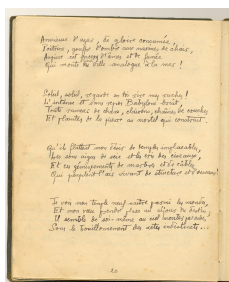 Anxieuse d'azur, de gloire consumée,
Poitrine, gouffre d'ombre aux narines de chair,
Aspire cet encens d'âmes et de fumée
Qui monte d'une ville analogue à la mer !
Soleil, soleil, regarde en toi rire mes ruches !
L'intense et sans repos Babylone bruit,
Toute rumeurs de chars, clairons, chaînes de cruches
Et plaintes de la pierre au mortel qui construit.
Qu'ils flattent mon désir de temples implacables,
Les sons aigus de scie et les cris des ciseaux,
Et ces gémissements de marbres et de câbles
Qui peuplent l'air vivant de structure et d'oiseaux !
Je vois mon temple neuf naître parmi les mondes,
Et mon vœu prendre place au séjour des destins,
Il semble de soi-même au ciel monter par ondes
Sous le bouillonnement des actes indistincts...